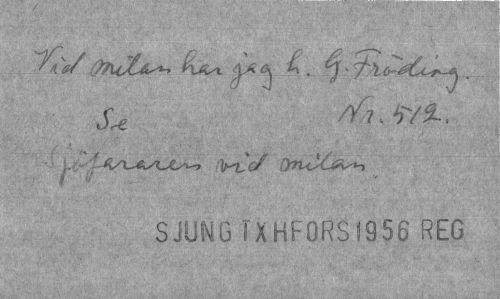 Vid milan har jag h. G. Fröding.
Se Nr. 512.
Sjöfararen vid milan.
SJUNG TXHFORS1956 REG